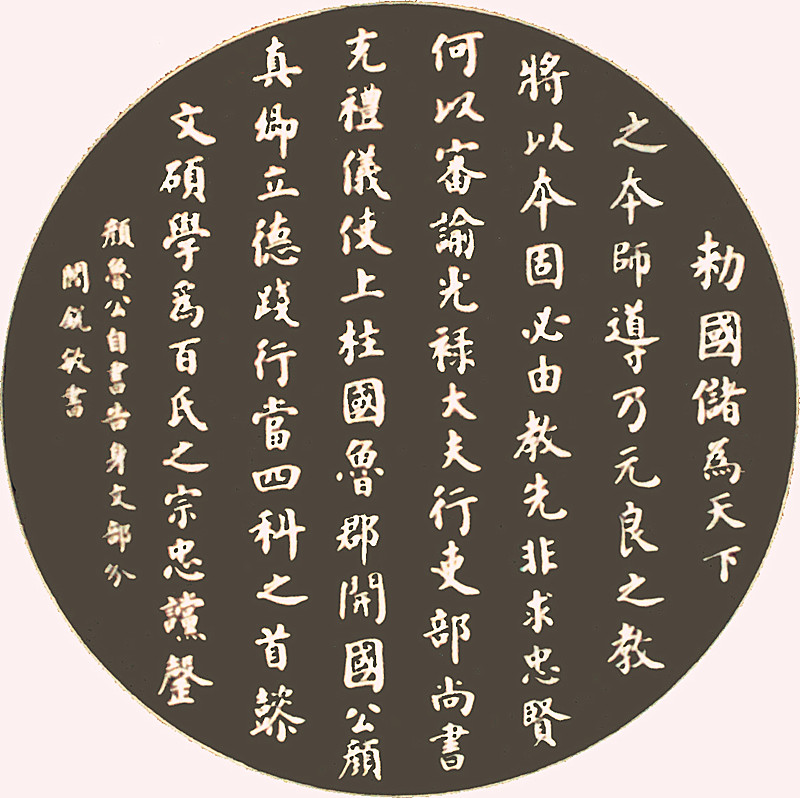 勅國儲為天下
之本師導乃元良之教
將以本固必由教先非求忠賢
何以審諭光祿大夫行吏部尚書
充禮儀使上柱國魯郡開國公顔
真卿立德踐行當四科之首懿
文碩學爲百氏之宗忠讜罄
顔魯公自書告身文部分
銳敏書